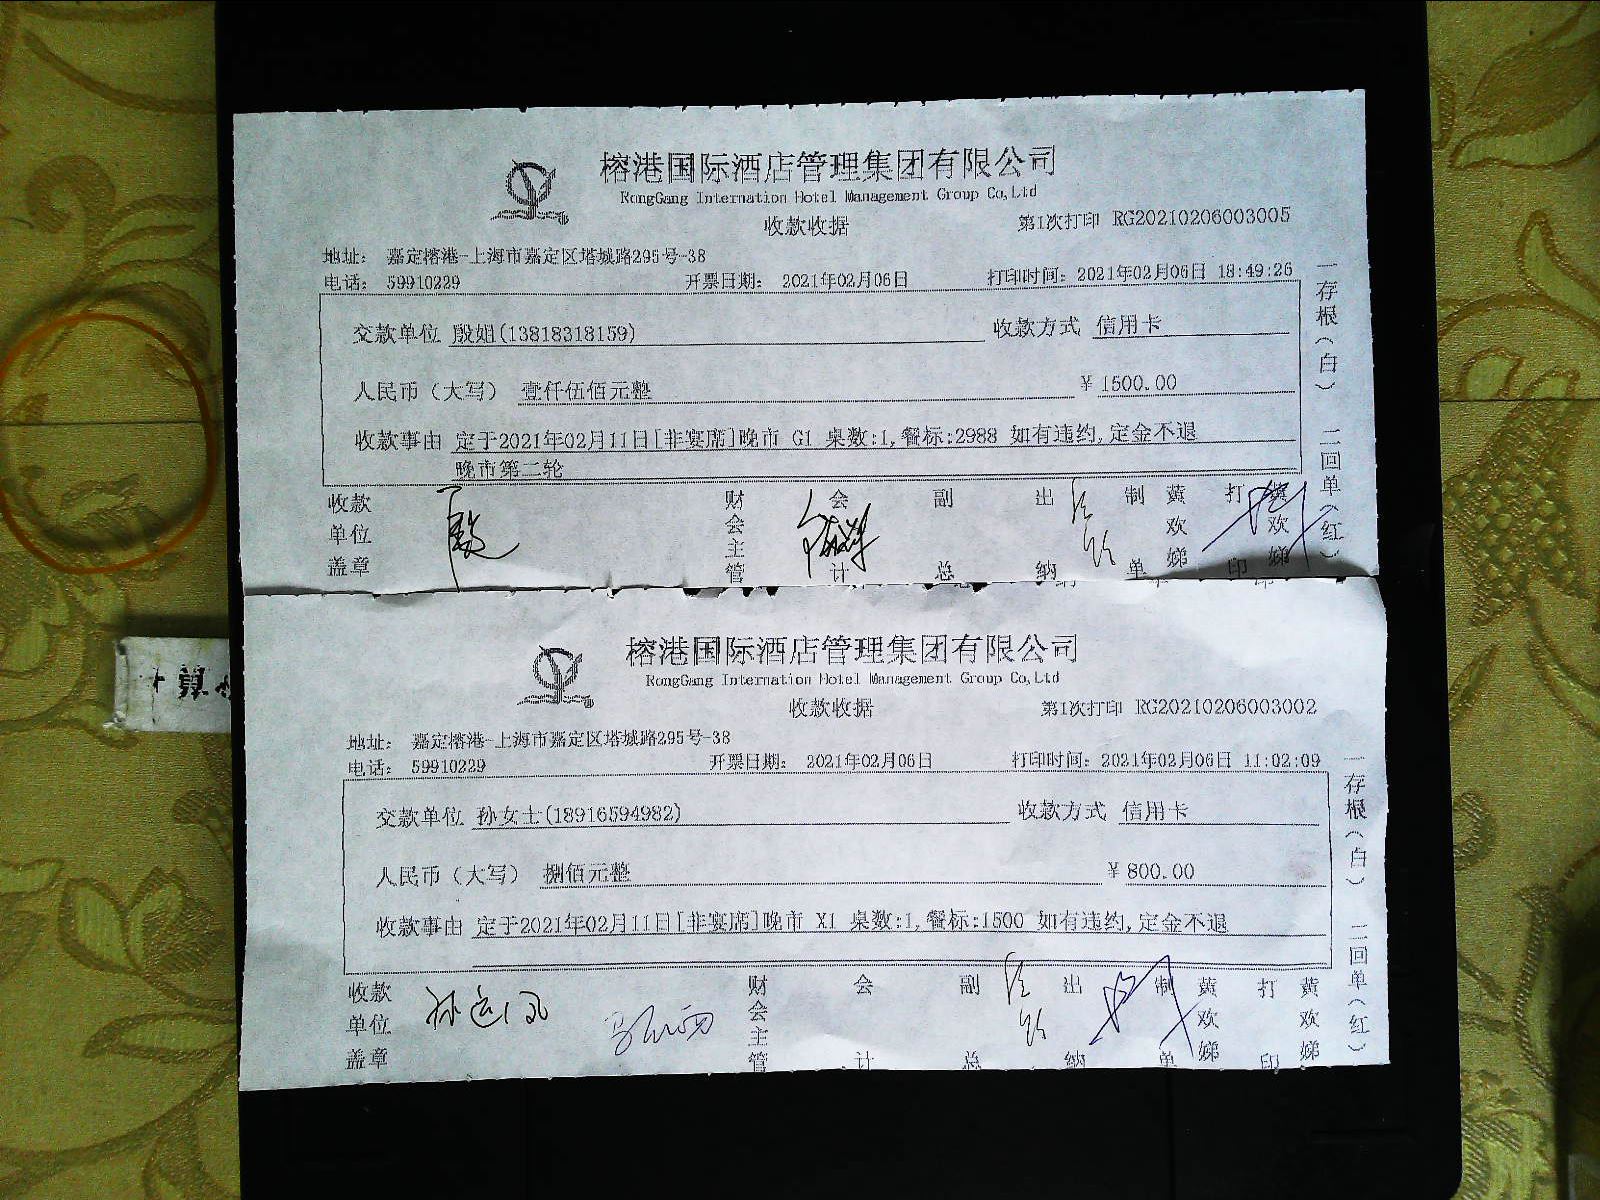 榕港国际酒店管理集团有限公司
RongGang Internation Hotel Management Group Co,Ltd
收款收据
第1次打印 RG20210206003005
地址: 嘉定榕港-上海市嘉定区塔城路295号-38
电话: 59910229 开票日期: 2021年02月06日 打印时间: 2021年02月06日 18:49:26
交款单位 殷姐(13818318159) 收款方式 信用卡
人民币（大写） 壹仟伍佰元整 ¥ 1500.00
收款事由 定于2021年02月11日[非宴席]晚市 G1 桌数:1,餐标:2988 如有违约,定金不退
晚市第二轮
收款单位盖章 殷 财会主管 会计 副总 出纳 制单 黄欢娣 打印 黄欢娣
一存根(白) 二回单(红)
榕港国际酒店管理集团有限公司
RongGang Internation Hotel Management Group Co,Ltd
收款收据
第1次打印 RG20210206003002
地址: 嘉定榕港-上海市嘉定区塔城路295号-38
电话: 59910229 开票日期: 2021年02月06日 打印时间: 2021年02月06日 11:02:09
交款单位 孙女士(18916594982) 收款方式 信用卡
人民币（大写） 捌佰元整 ¥ 800.00
收款事由 定于2021年02月11日[非宴席]晚市 X1 桌数:1,餐标:1500 如有违约,定金不退
收款单位盖章 财会主管 会计 副总 出纳 制单 黄欢娣 打印 黄欢娣
一存根(白) 二回单(红)